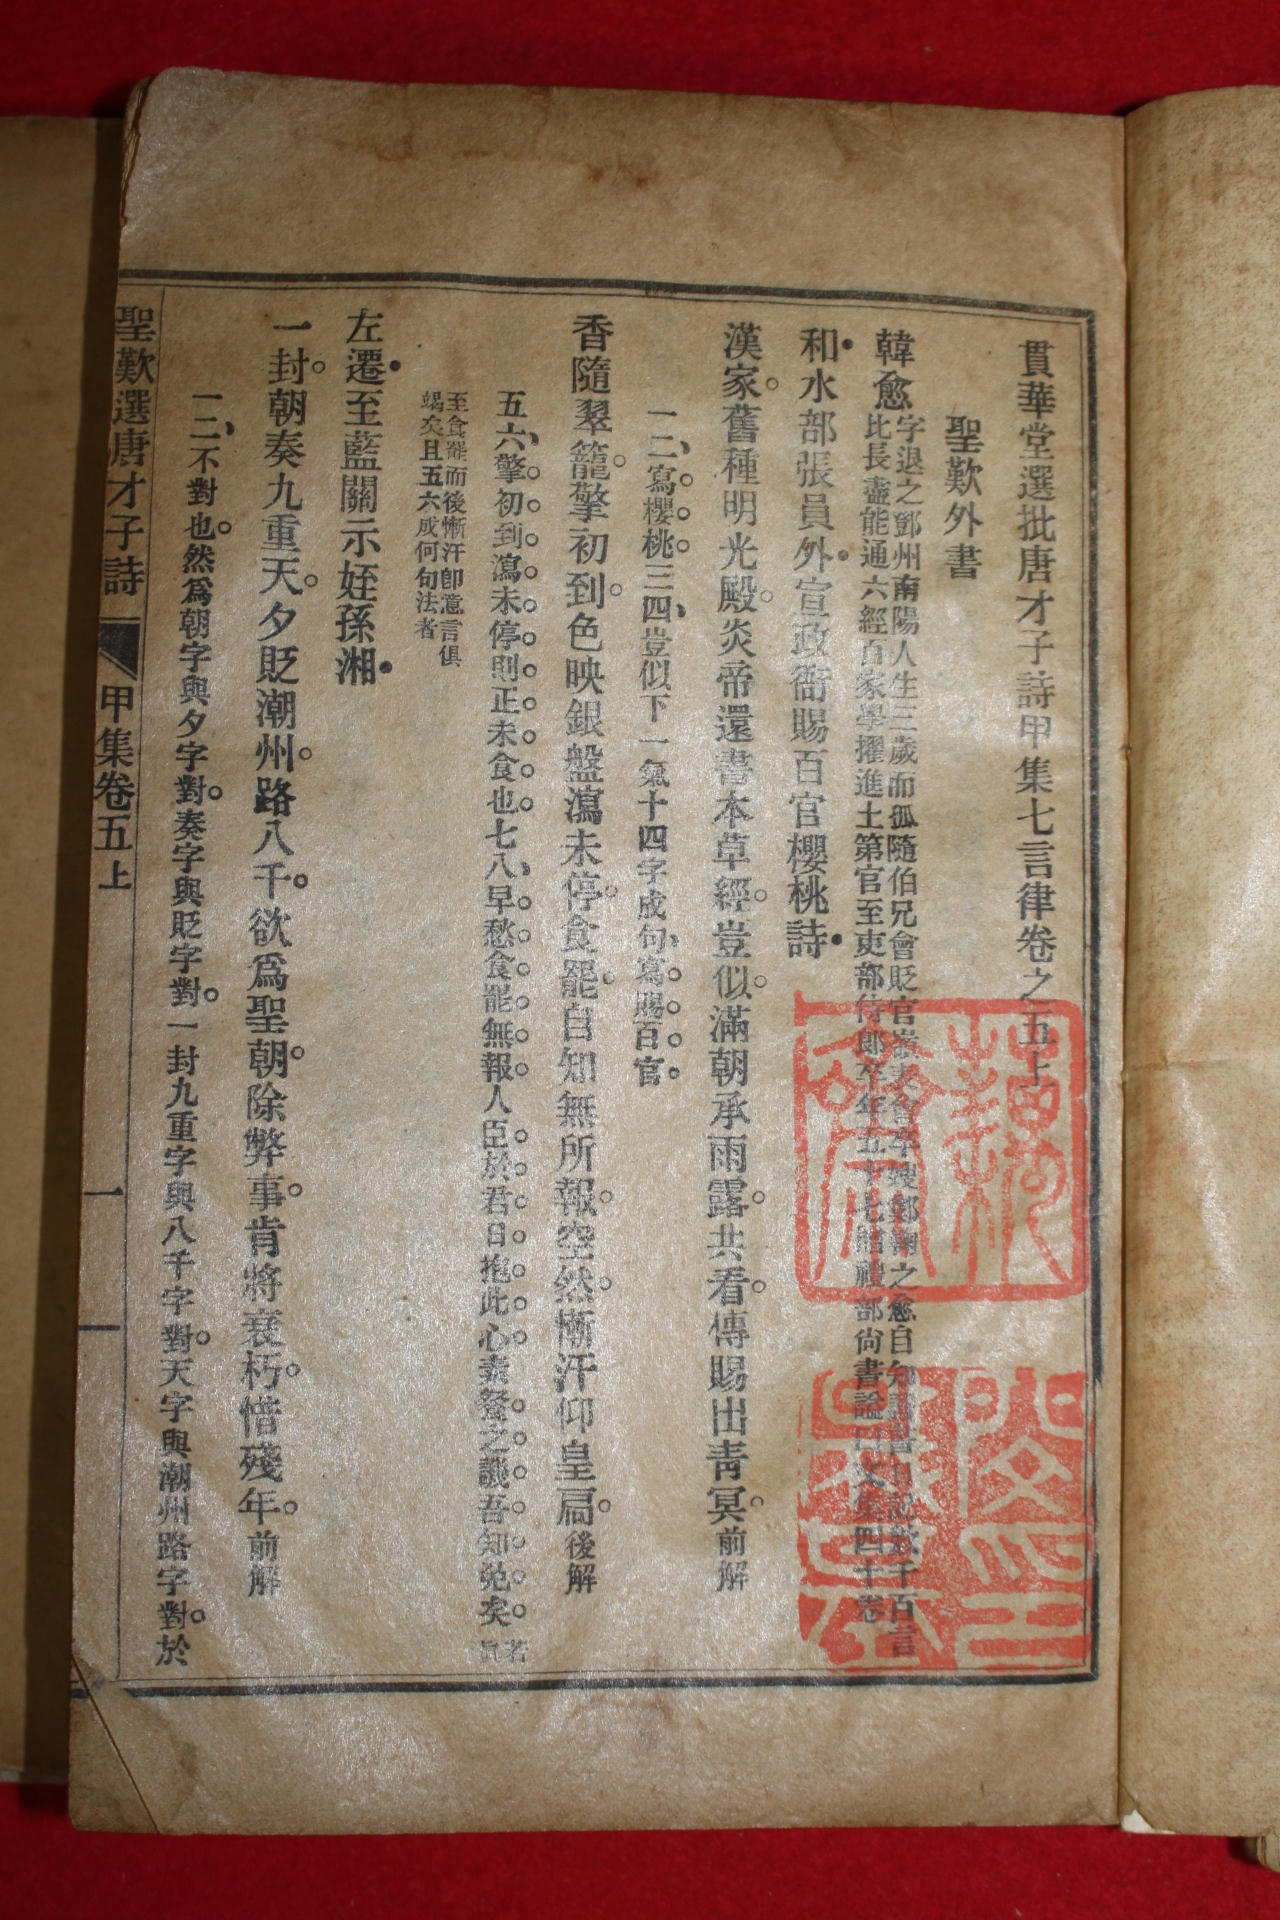 貫華堂選批唐才子詩甲集七言律卷之五上
聖歎外書
韓愈
字退之鄧州南陽人生三歲而孤隨伯兄會貶官嶺表會卒嫂鄭鞠之愈自知讀書日記數千百言
比長盡能通六經百家學擢進士第官至吏部侍郎卒年五十七贈禮部尙書諡曰文集四十卷
和水部張員外宣政衙賜百官櫻桃詩
漢家舊種明光殿炎帝還書本草經豈似滿朝承雨露共看傳賜出靑冥前解
一二寫櫻桃三四豈似下一氣十四字成句寫賜百官
香隨翠籠擎初到色映銀盤瀉未停食罷自知無所報空然慚汗仰皇扃後解
五六擎初到瀉未停則正未食也七八早愁食罷無報人臣於君日抱此心素餐之譏吾知免矣若眞
至食罷而後慚汗卽意言俱
竭矣且五六成何句法者
左遷至藍關示姪孫湘
一封朝奏九重天夕貶潮州路八千欲爲聖朝除弊事肯將衰朽惜殘年前解
一二不對也然爲朝字與夕字對奏字與貶字對一封九重字與八千字對天字與潮州路字對於
聖歎選唐才子詩
甲集卷五上
一